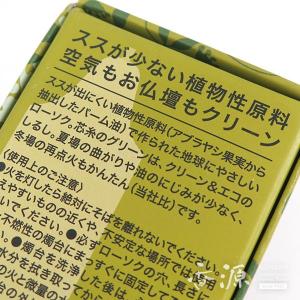 ススが少ない植物性原料
空気もお仏壇もクリーン
ススが出にくい植物性原料(アブラヤシ果実から
抽出したパーム油)で作られた地球にやさしい
ローソク。芯糸のグリーンは、クリーン&エコの
しるし。夏場の曲がりや油のにじみが少なく、
冬場の再点火もかんたん(当社比)です。
使用上のご注意
火を灯したら絶対にそばを離れないでください。
えやすいものの近くや、不安定な場所では
ないでください。●必ずローソクの穴、長さ
不燃性の燭台にま すぐに固定して
●燭台を洗浄し
水分を拭き取って
の火と微量の
香源